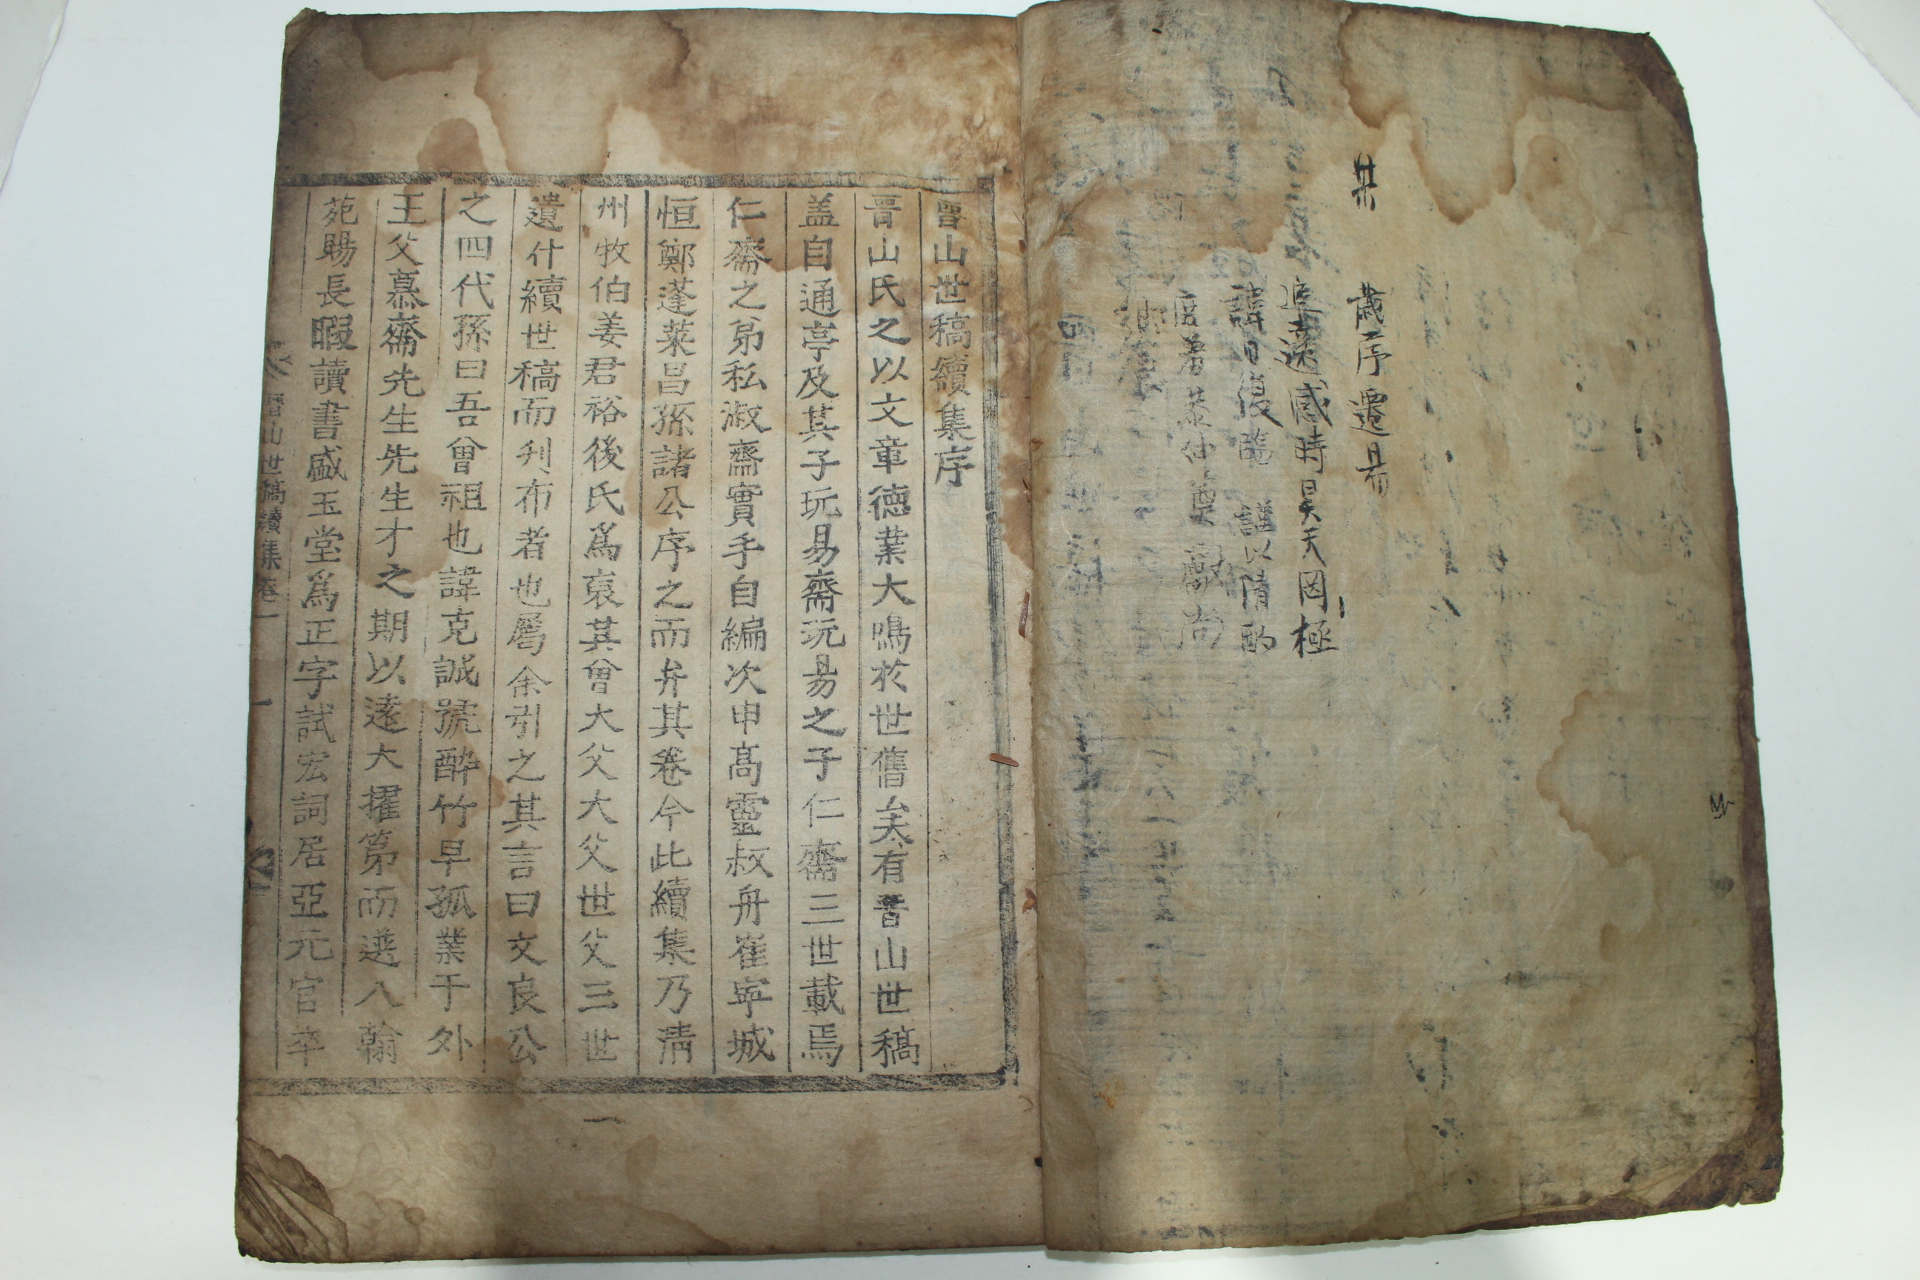 歲序遷易
追遠感時昊天罔極
諱日復臨 謹以淸酌
奠獻尙
晉山世稿續集序
晉山氏之以文章德業大鳴於世舊矣有晉山世稿
盖自通亭及其子玩易齋玩易之子仁齋三世載焉
仁齋之弟私淑齋實手自編次申高靈叔舟崔寧城
恒鄭蓬萊昌孫諸公序之而弁其卷今此續集乃淸
州牧伯姜君裕後氏爲裒其曾大父大父世父三世
遺什續世稿而刋布者也屬余引之其言曰文良公
之四代孫曰吾曾祖也諱克誠號醉竹早孤業于外
王父慕齋先生先生才之期以遠大擢第而選入翰
苑賜長暇讀書盛玉堂爲正字試宏詞居亞元官卒
晉山世稿續集卷一
一